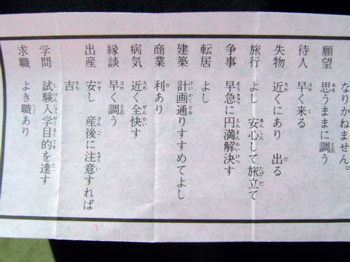 なりかねません。
願望 思うままに調う
待人 早く来る
失物 近くにあり 出る
旅行 よし 安心して旅立て
争事 早急に円満解決す
転居 よし
建築 計画通りすすめてよし
商業 利あり
病気 近く全快す
縁談 早く調う
出産 安し 産後に注意すれば
吉
学問 試験入学目的を達す
求職 よき職あり